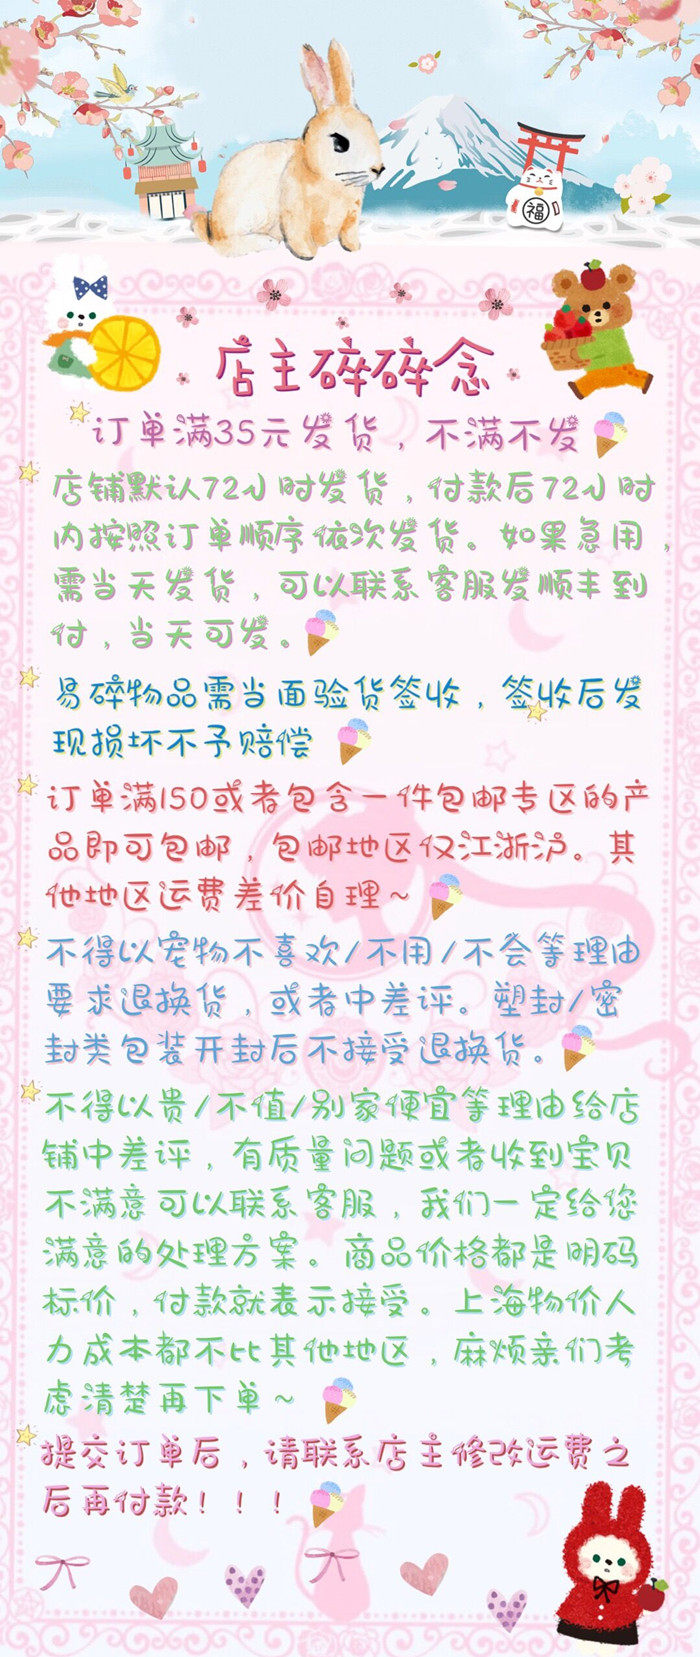 福
店主碎碎念
订单满35元发货，不满不发
店铺默认72小时发货，付款后72小时
内按照订单顺序依次发货。如果急用，
需当天发货，可以联系客服发顺丰到
付，当天可发。
易碎物品需当面验货签收，签收后发
现损坏不予赔偿
订单满150或者包含一件包邮专区的产
品即可包邮，包邮地区仅江浙沪。其
他地区运费差价自理~
不得以宠物不喜欢/不用/不会等理由
要求退换货，或者中差评。塑封/密
封类包装开封后不接受退换货。
不得以贵/不值/别家便宜等理由给店
铺中差评，有质量问题或者收到宝贝
不满意可以联系客服，我们一定给您
满意的处理方案。商品价格都是明码
标价，付款就表示接受。上海物价人
力成本都不比其他地区，麻烦亲们考
虑清楚再下单~
提交订单后，请联系店主修改运费之
后再付款！！！